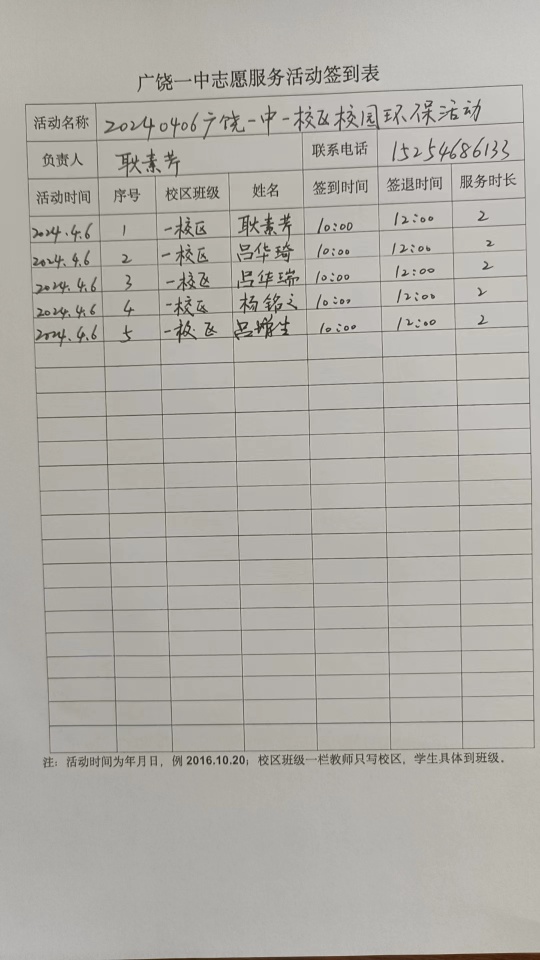 广饶一中志愿服务活动签到表
活动名称 20240406广饶一中一校区校园环保活动
负责人 耿素芹 联系电话 15254686133
活动时间 序号 校区班级 姓名 签到时间 签退时间 服务时长
2024.4.6 1 一校区 耿素芹 10:00 12:00 2
2024.4.6 2 一校区 吕华琦 10:00 12:00 2
2024.4.6 3 一校区 吕华瑞 10:00 12:00 2
2024.4.6 4 一校区 杨铭文 10:00 12:00 2
2024.4.6 5 一校区 10:00 12:00 2
注：活动时间为年月日，例 2016.10.20；校区班级一栏教师只写校区，学生具体到班级。